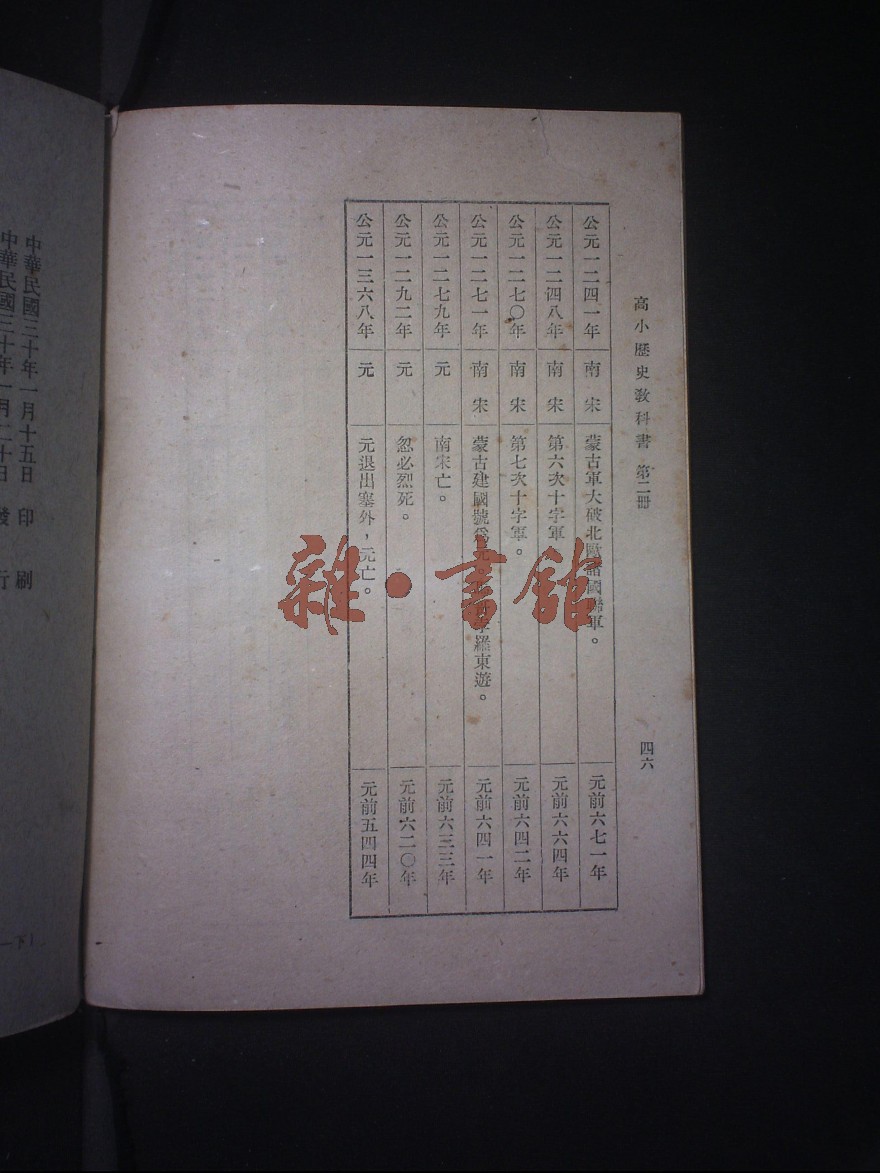 高小歷史教科書 第二冊
四六
公元一二四一年 南宋 蒙古軍大破北歐諸國聯軍。 元前六七一年
公元一二四八年 南宋 第六次十字軍 元前六六四年
公元一二七〇年 南宋 第七次十字軍。 元前六四二年
公元一二七一年 南宋 蒙古建國號爲元。 羅東遊。 元前六四一年
公元一二七九年 元 南宋亡。 元前六三三年
公元一二九二年 元 忽必烈死。 元前六二〇年
公元一三六八年 元 元退出塞外，元亡。 元前五四四年
中華民國三十年一月十五日 印刷
中華民國三十年一月二十日 發行
一下）
雜·書館